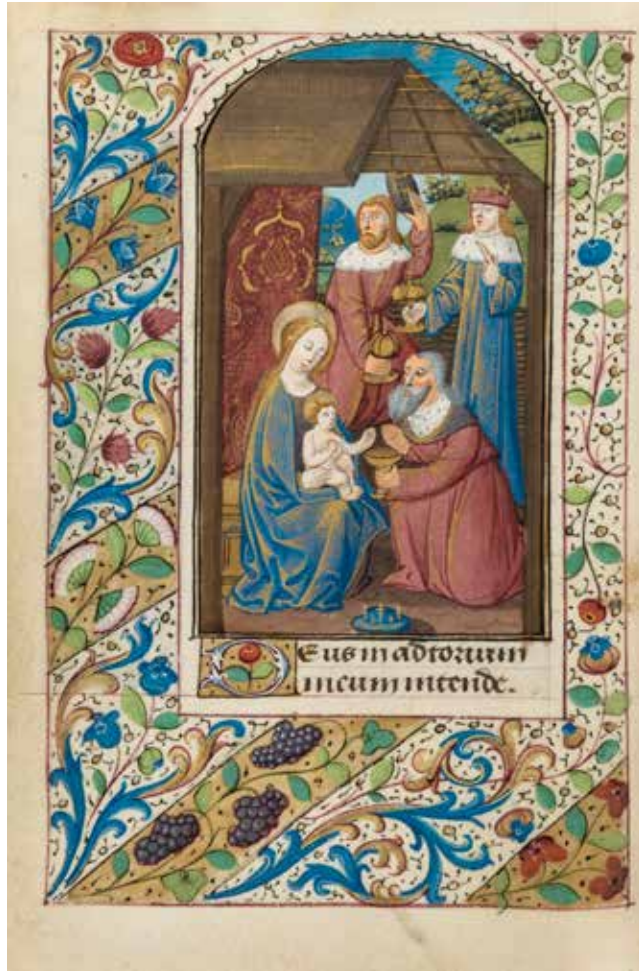 Deus in adiutorium
meum intende.